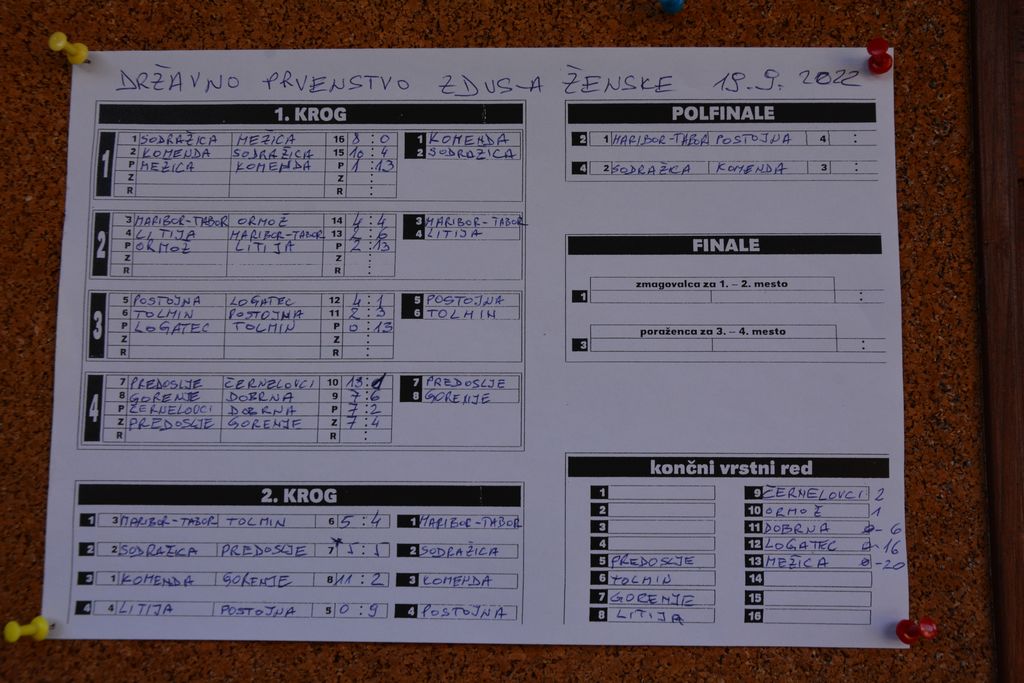 DRŽAVNO PRVENSTVO ZDUS-A ŽENSKE 19.9. 2022
1. KROG
1
1 SODRAŽICA MEŽICA 16 8 : 0 1 KOMENDA
2 KOMENDA SODRAŽICA 15 10 : 4 2 SODRAŽICA
P MEŽICA KOMENDA P 1 : 13
Z Z :
R R :
2
3 MARIBOR-TABOR ORMOŽ 14 4 : 4 3 MARIBOR-TABOR
4 LITIJA MARIBOR-TABOR 13 2 : 6 4 LITIJA
P ORMOŽ LITIJA P 2 : 13
Z Z :
R R :
3
5 POSTOJNA LOGATEC 12 4 : 1 5 POSTOJNA
6 TOLMIN POSTOJNA 11 2 : 3 6 TOLMIN
P LOGATEC TOLMIN P 0 : 13
Z Z :
R R :
4
7 PREDOSLJE ČERNELOVCI 10 13 : 7 PREDOSLJE
8 GORENJE DOBRNA 9 7 : 6 8 GORENJE
P ČERNELOVCI DOBRNA P 7 : 2
Z PREDOSLJE GORENJE Z 7 : 4
R R :
2. KROG
1 3 MARIBOR-TABOR TOLMIN 6 5 : 4 1 MARIBOR-TABOR
2 2 SODRAŽICA PREDOSLJE 7 * 5 : 5 2 SODRAŽICA
3 1 KOMENDA GORENJE 8 11 : 2 3 KOMENDA
4 4 LITIJA POSTOJNA 5 0 : 9 4 POSTOJNA
POLFINALE
2 1 MARIBOR-TABOR POSTOJNA 4 :
4 2 SODRAŽICA KOMENDA 3 :
FINALE
zmagovalca za 1. – 2. mesto
1 :
poraženca za 3. – 4. mesto
3 :
končni vrstni red
1 9 ČERNELOVCI 2
2 10 ORMOŽ 1
3 11 DOBRNA 0 - 6
4 12 LOGATEC 0 - 16
5 PREDOSLJE 13 MEŽICA 0 - 20
6 TOLMIN 14
7 GORENJE 15
8 LITIJA 16